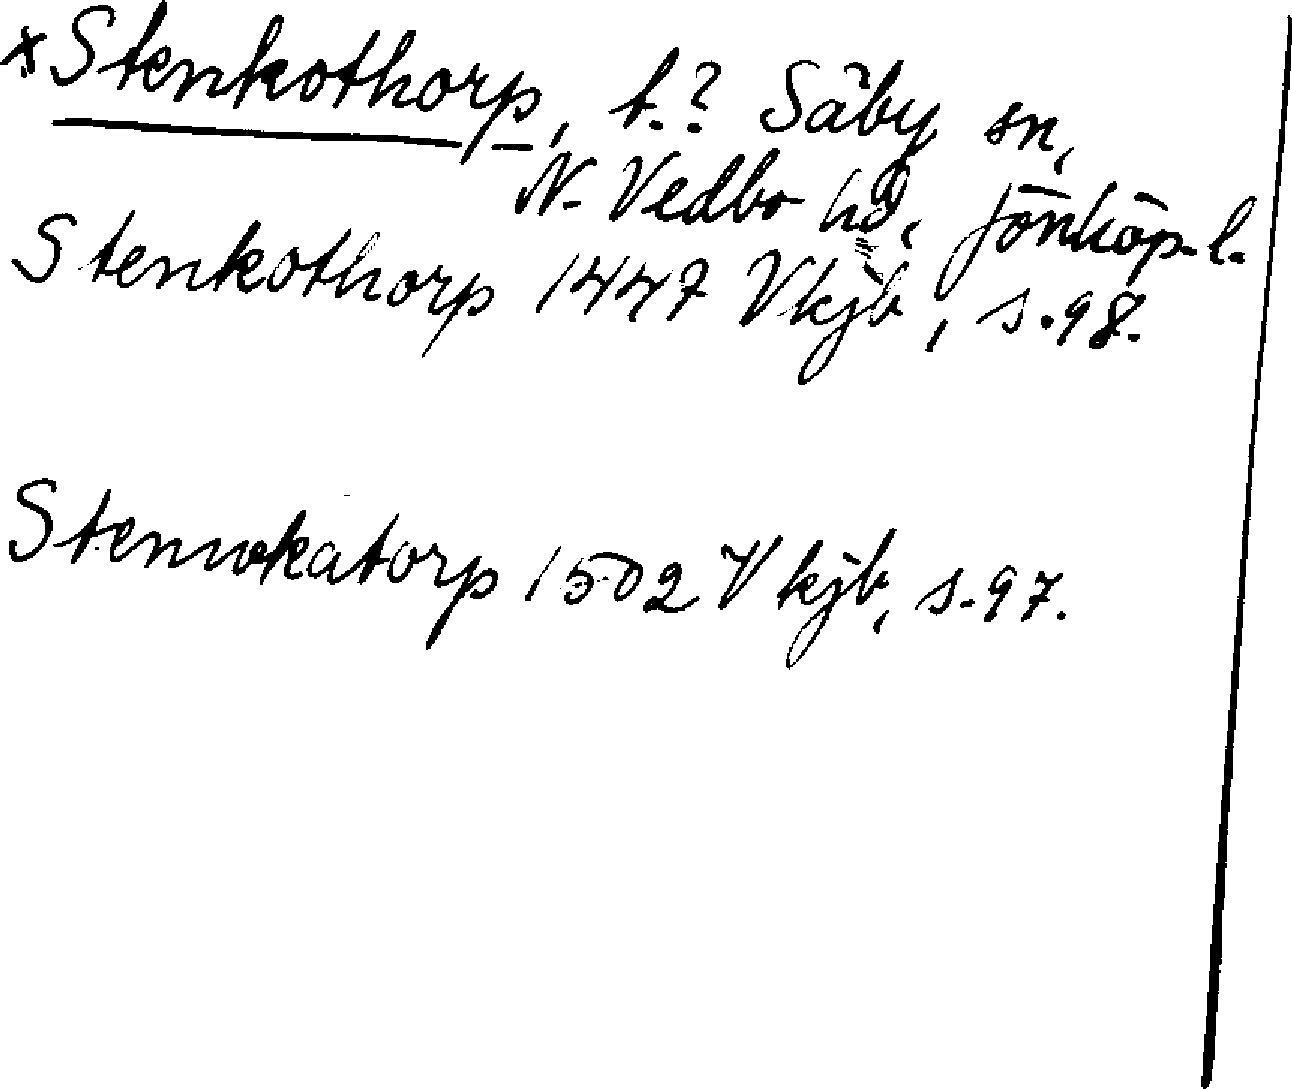 *Stenkothorp, t.? Säby sn,
N. Vedbo hd, Jönköp. l.
Stenkothorp 1447 Vkjb, s. 98.
Stennokatorp 1502 Vkjb, s. 97.